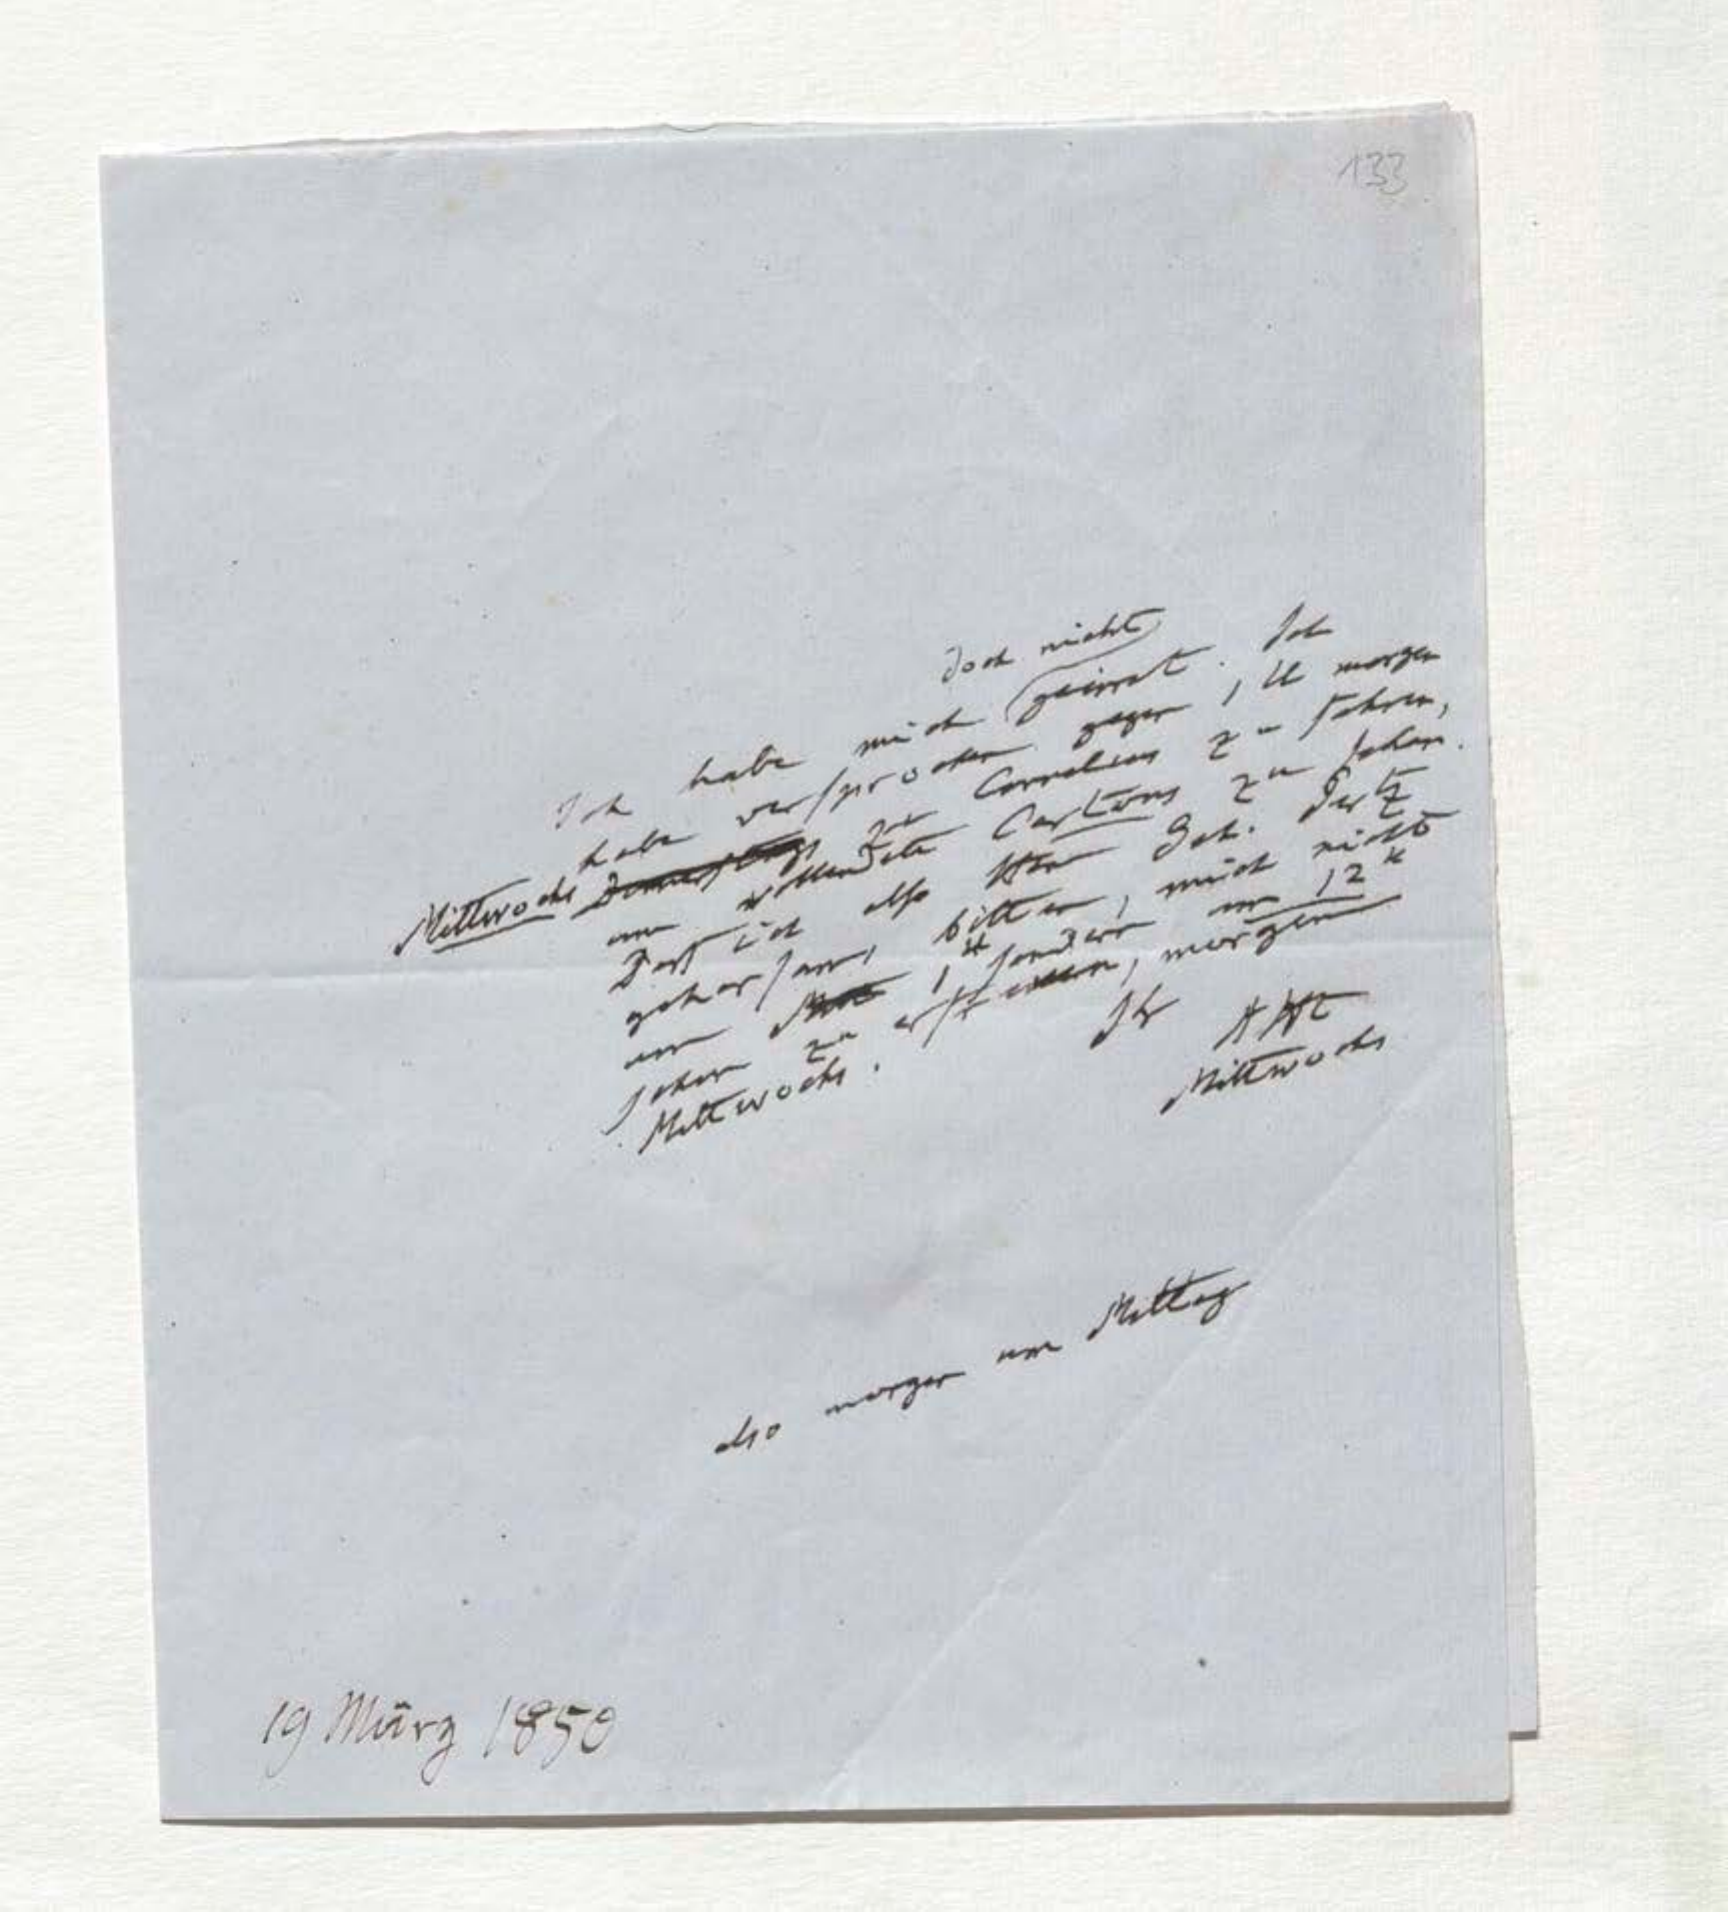 133
doch nicht
Ich habe mich geirrt. Ich
habe versprochen gegen 1 U morgen
Mittwochs Donnerstags zu Cornelius zu fahren,
um vollendete Cartons zu sehen.
Darf ich also Herr Geh. Pertz
gehorsamst bitten, mich nicht
um 1 U sondern um 12 U
schon zu erfreuen, morgen
Mittwochs.
Ihr AHt
Mittwochs
also morgen um Mittag
19 März 1850